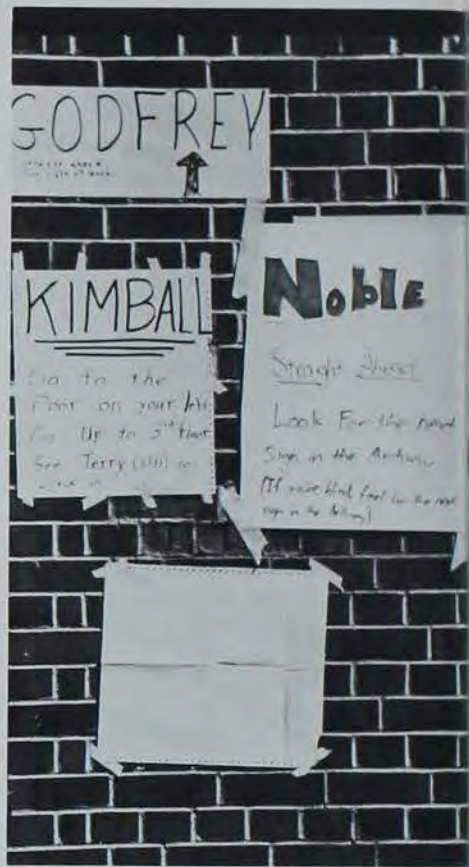 GODFREY
KIMBALL
Go to the
Door on your left
Go Up to 2nd floor
See Terry
Noble
Straight Ahead
Look For the next
Sign in the Archway
(If you're blind feel for the next
sign in the